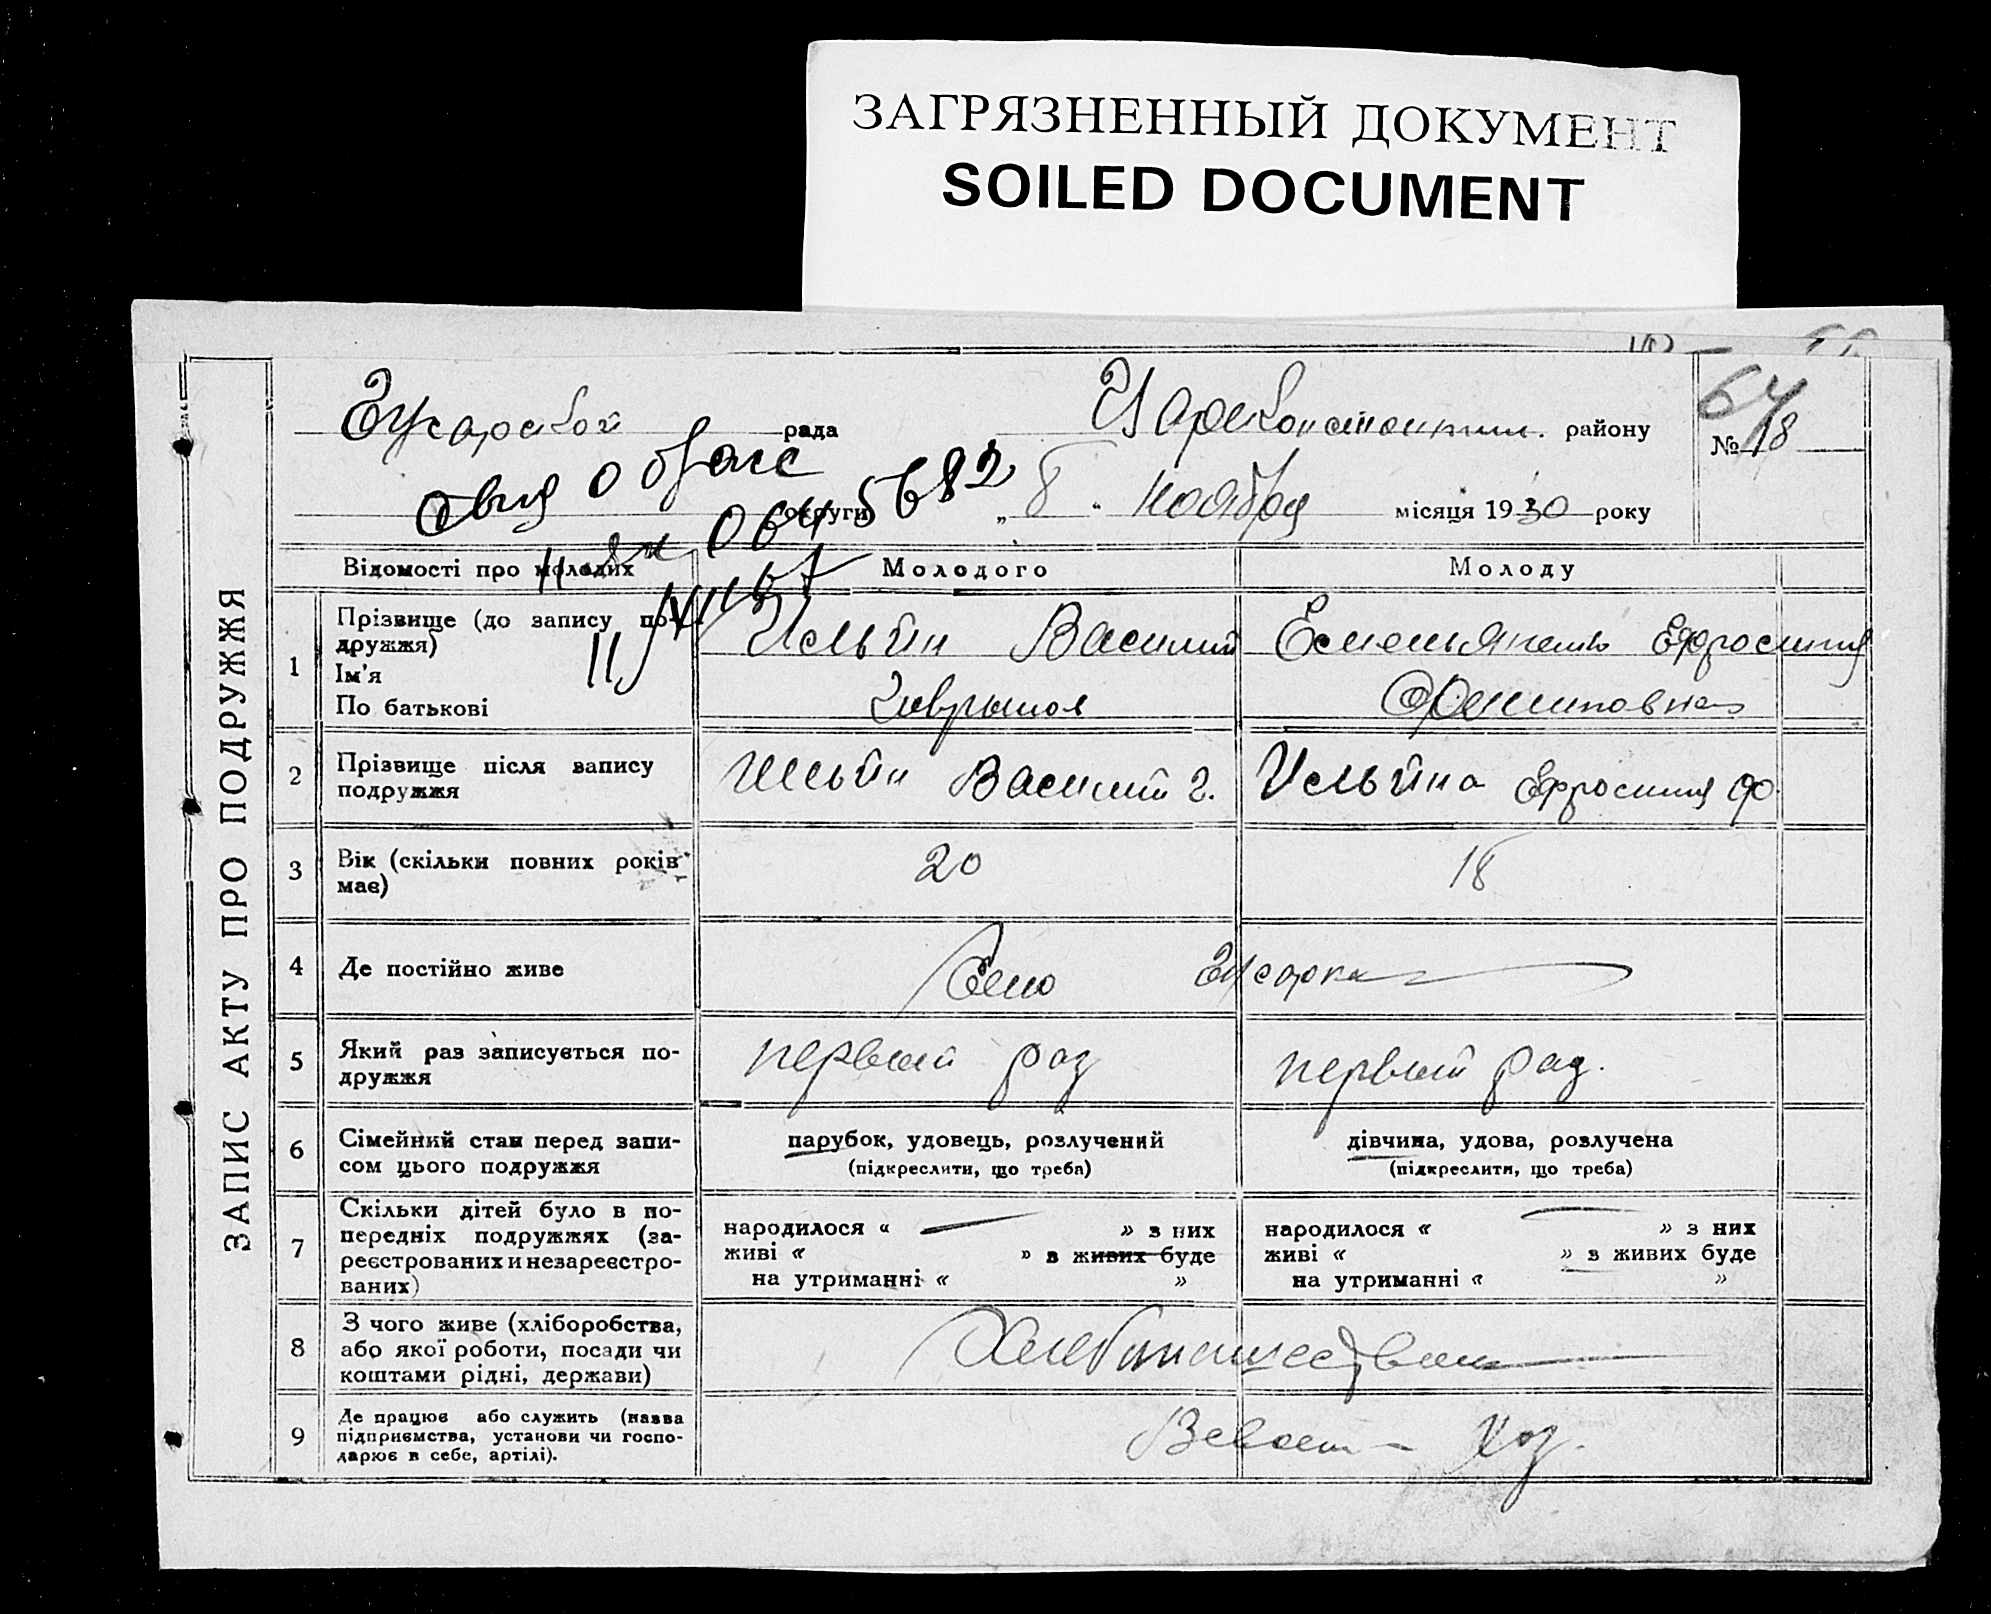 ЗАГРЯЗНЕННЫЙ ДОКУМЕНТ
SOILED DOCUMENT
64
рада
району
№ 18
округи
„ 8 " ноября місяця 1930 року
ЗАПИС АКТУ ПРО ПОДРУЖЖЯ
Відомості про молодих Молодого Молоду
1 Прізвище (до запису по-
дружжя)
Ім'я
По батькові
Ильин Василий
Емельяненко Ефросиния
2 Прізвище після запису
подружжя
Ильин Василий Г. Ильина Ефросиния Ф.
3 Вік (скільки повних років
має)
20 18
4 Де постійно живе
Село
5 Який раз записується по-
дружжя
первый раз первый раз.
6 Сімейний стан перед запи-
сом цього подружжя
парубок, удовець, розлучений
(підкреслити, що треба)
дівчина, удова, розлучена
(підкреслити, що треба)
7 Скільки дітей було в по-
передніх подружжях (за-
реєстрованих и незареєстро-
ваних)
народилося « — » з них
живі « » з живих буде
на утриманні « »
народилося « — » з них
живі « » з живих буде
на утриманні « »
8 З чого живе (хліборобства,
або якої роботи, посади чи
коштами рідні, держави)
9 Де працює або служить (назва
підприємства, установи чи госпо-
дарює в себе, артілі).
хоз.